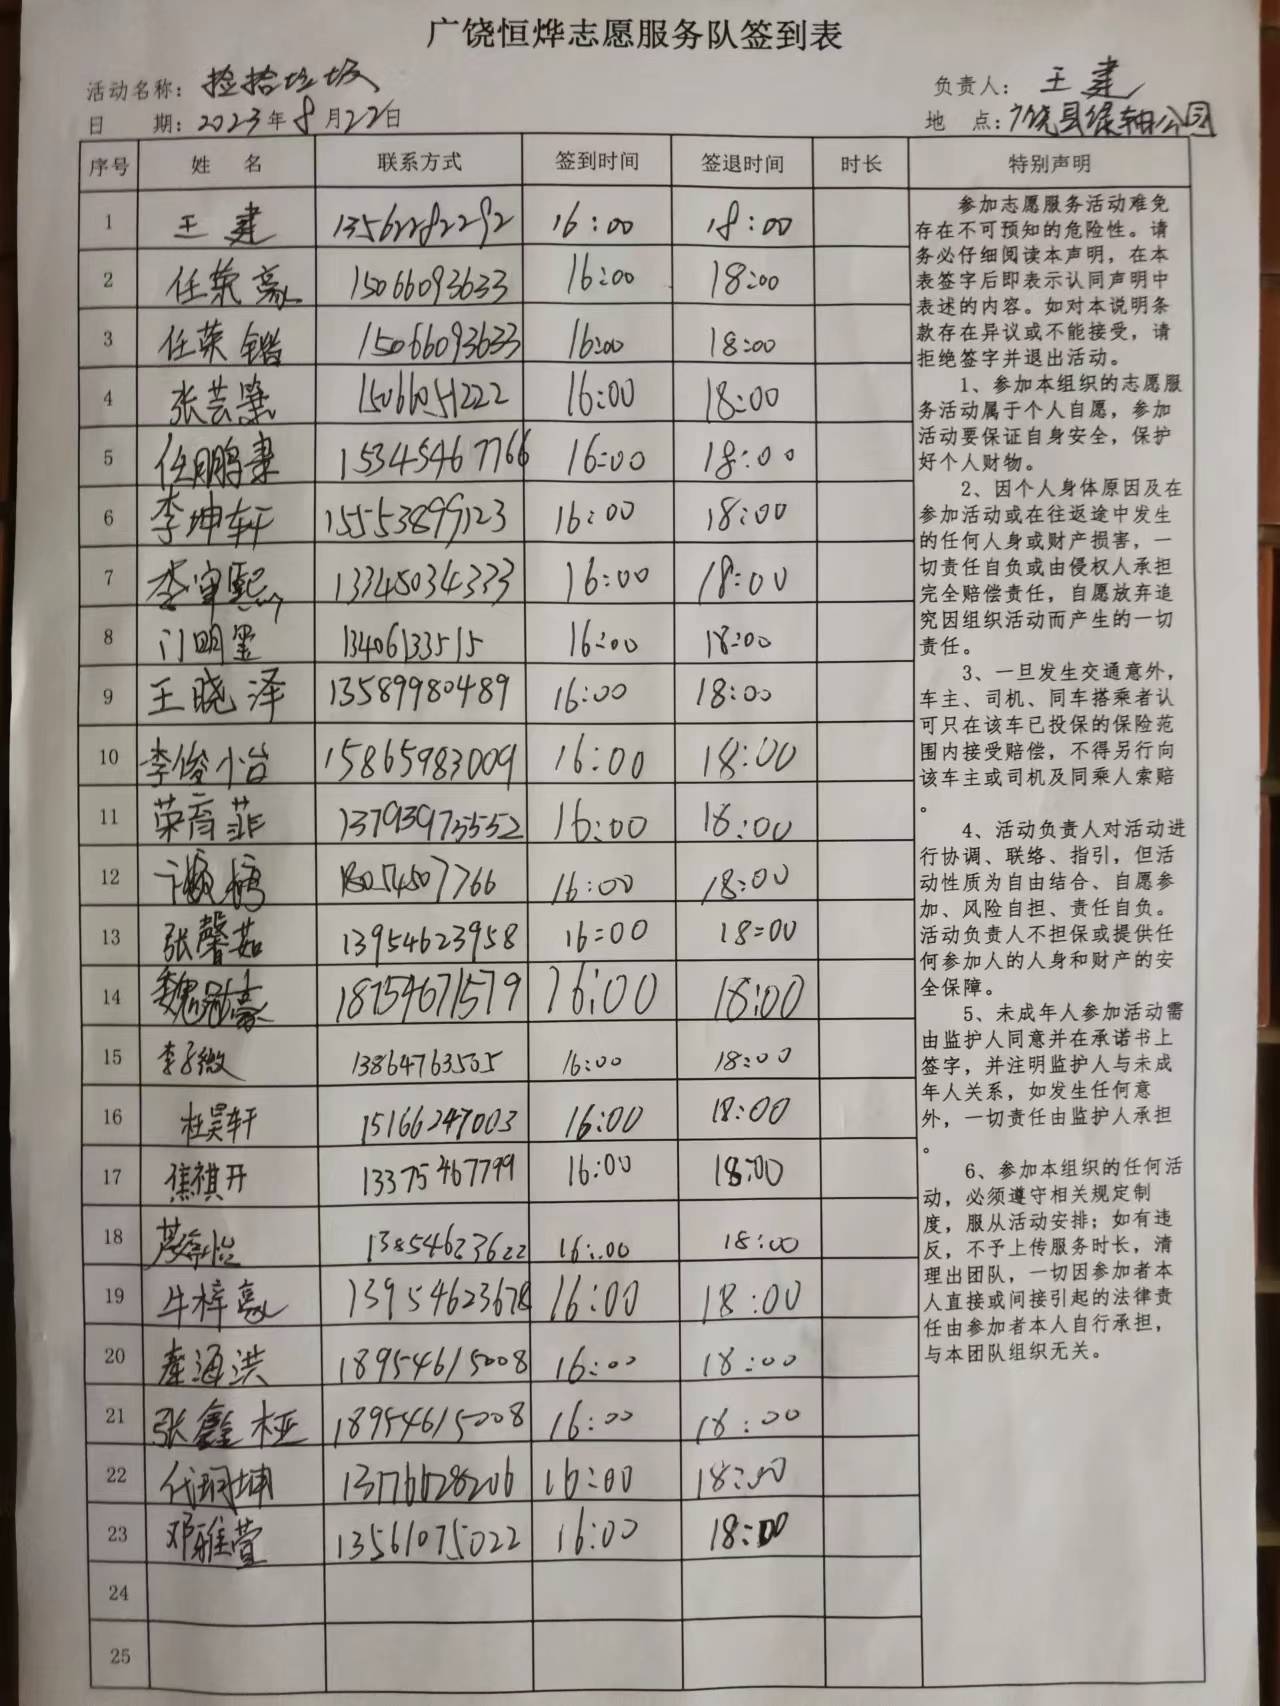 广饶恒烨志愿服务队签到表
活动名称：捡拾垃圾 负责人：王建
日 期：2023年8月22日 地 点：广饶县绿轴公园
序号 姓 名 联系方式 签到时间 签退时间 时长 特别声明
1 王建 13562282292 16:00 18:00
2 任荣豪 15066093633 16:00 18:00
3 任荣锴 15066093633 16:00 18:00
4 张芸 16:00 18:00
5 任鹏 15345467766 16:00 18:00
6 李坤轩 15553899123 16:00 18:00
7 李 熙 13345034333 16:00 18:00
8 门明 13406133515 16:00 18:00
9 王晓泽 13589980489 16:00 18:00
10 李俊怡 15865983009 16:00 18:00
11 荣育菲 16:00 18:00
12 16:00 18:00
13 张馨茹 13954623958 16:00 18:00
14 魏 豪 18754671579 16:00 18:00
15 李子微 13864763505 16:00 18:00
16 杜昊轩 15166247003 16:00 18:00
17 焦祺开 13375467799 16:00 18:00
18 13854623622 16:00 18:00
19 牛梓豪 13954623678 16:00 18:00
20 洪 18954615008 16:00 18:00
21 张鑫桠 18954615008 16:00 18:00
22 代 坤 16:00 18:00
23 邓雅萱 13561075022 16:00 18:00
24
25
参加志愿服务活动难免
存在不可预知的危险性。请
务必仔细阅读本声明，在本
表签字后即表示认同声明中
表述的内容。如对本说明条
款存在异议或不能接受，请
拒绝签字并退出活动。
1、参加本组织的志愿服
务活动属于个人自愿，参加
活动要保证自身安全，保护
好个人财物。
2、因个人身体原因及在
参加活动或在往返途中发生
的任何人身或财产损害，一
切责任自负或由侵权人承担
完全赔偿责任，自愿放弃追
究因组织活动而产生的一切
责任。
3、一旦发生交通意外，
车主、司机、同车搭乘者认
可只在该车已投保的保险范
围内接受赔偿，不得另行向
该车主或司机及同乘人索赔
。
4、活动负责人对活动进
行协调、联络、指引，但活
动性质为自由结合、自愿参
加、风险自担、责任自负。
活动负责人不担保或提供任
何参加人的人身和财产的安
全保障。
5、未成年人参加活动需
由监护人同意并在承诺书上
签字，并注明监护人与未成
年人关系，如发生任何意
外，一切责任由监护人承担
。
6、参加本组织的任何活
动，必须遵守相关规定制
度，服从活动安排；如有违
反，不予上传服务时长，清
理出团队，一切因参加者本
人直接或间接引起的法律责
任由参加者本人自行承担，
与本团队组织无关。